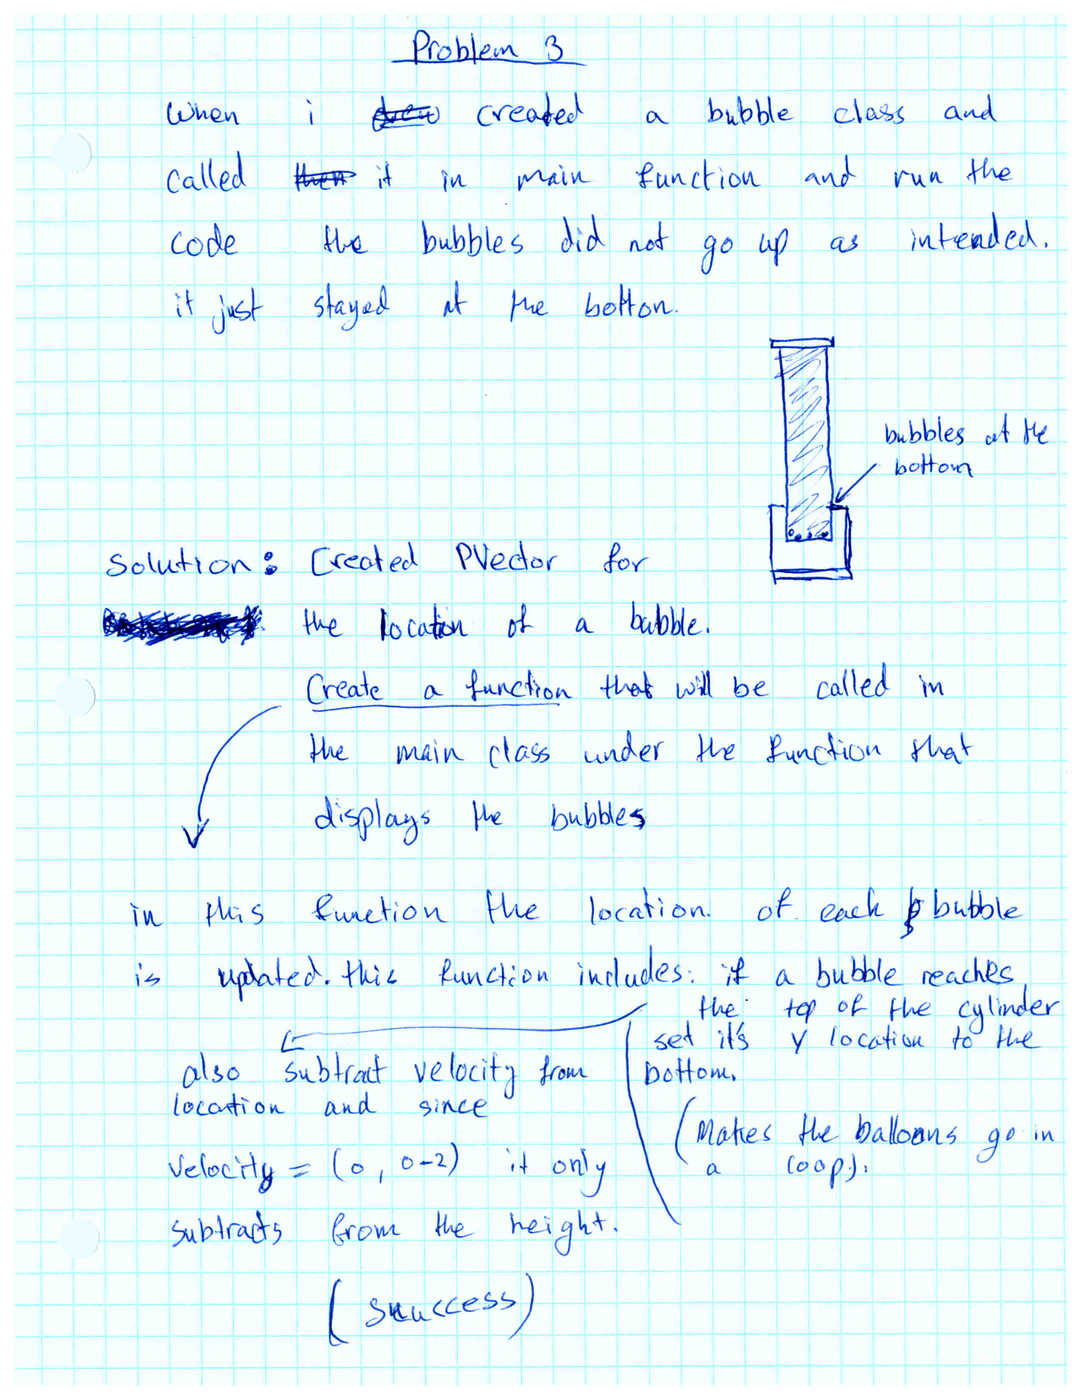 Problem 3
When i created a bubble class and
called it in main function and run the
code the bubbles did not go up as intended.
it just stayed at the botton.
bubbles at the
bottom
Solution: Created PVector for
the location of a bubble.
Create a function that will be called in
the main class under the function that
displays the bubbles
in this function the location. of each bubble
is updated. this function includes: if a bubble reaches
the top of the cylinder
set it's y location to the
bottom.
(Makes the balloons go in
a loop).
also subtract velocity from
location and since
velocity = (0, 0-2) it only
subtracts from the height.
(success)